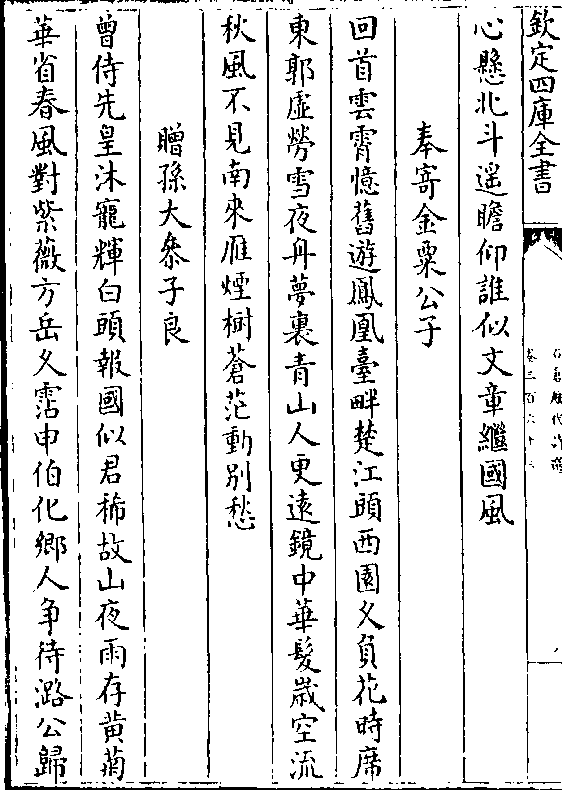 欽定四庫全書
心懸北斗遥瞻仰誰似文章繼國風
奉寄金粟公子
回首雲霄憶舊遊鳳凰臺畔楚江頭西園久負花時席
東郭虚勞雪夜舟夢裏青山人更遠鏡中華髮歳空流
秋風不見南來雁煙樹蒼茫動别愁
贈孫大叅子良
曾侍先皇沐寵輝白頭報國似君稀故山夜雨存黄菊
華省春風對紫薇方岳久霑申伯化鄉人争待潞公歸